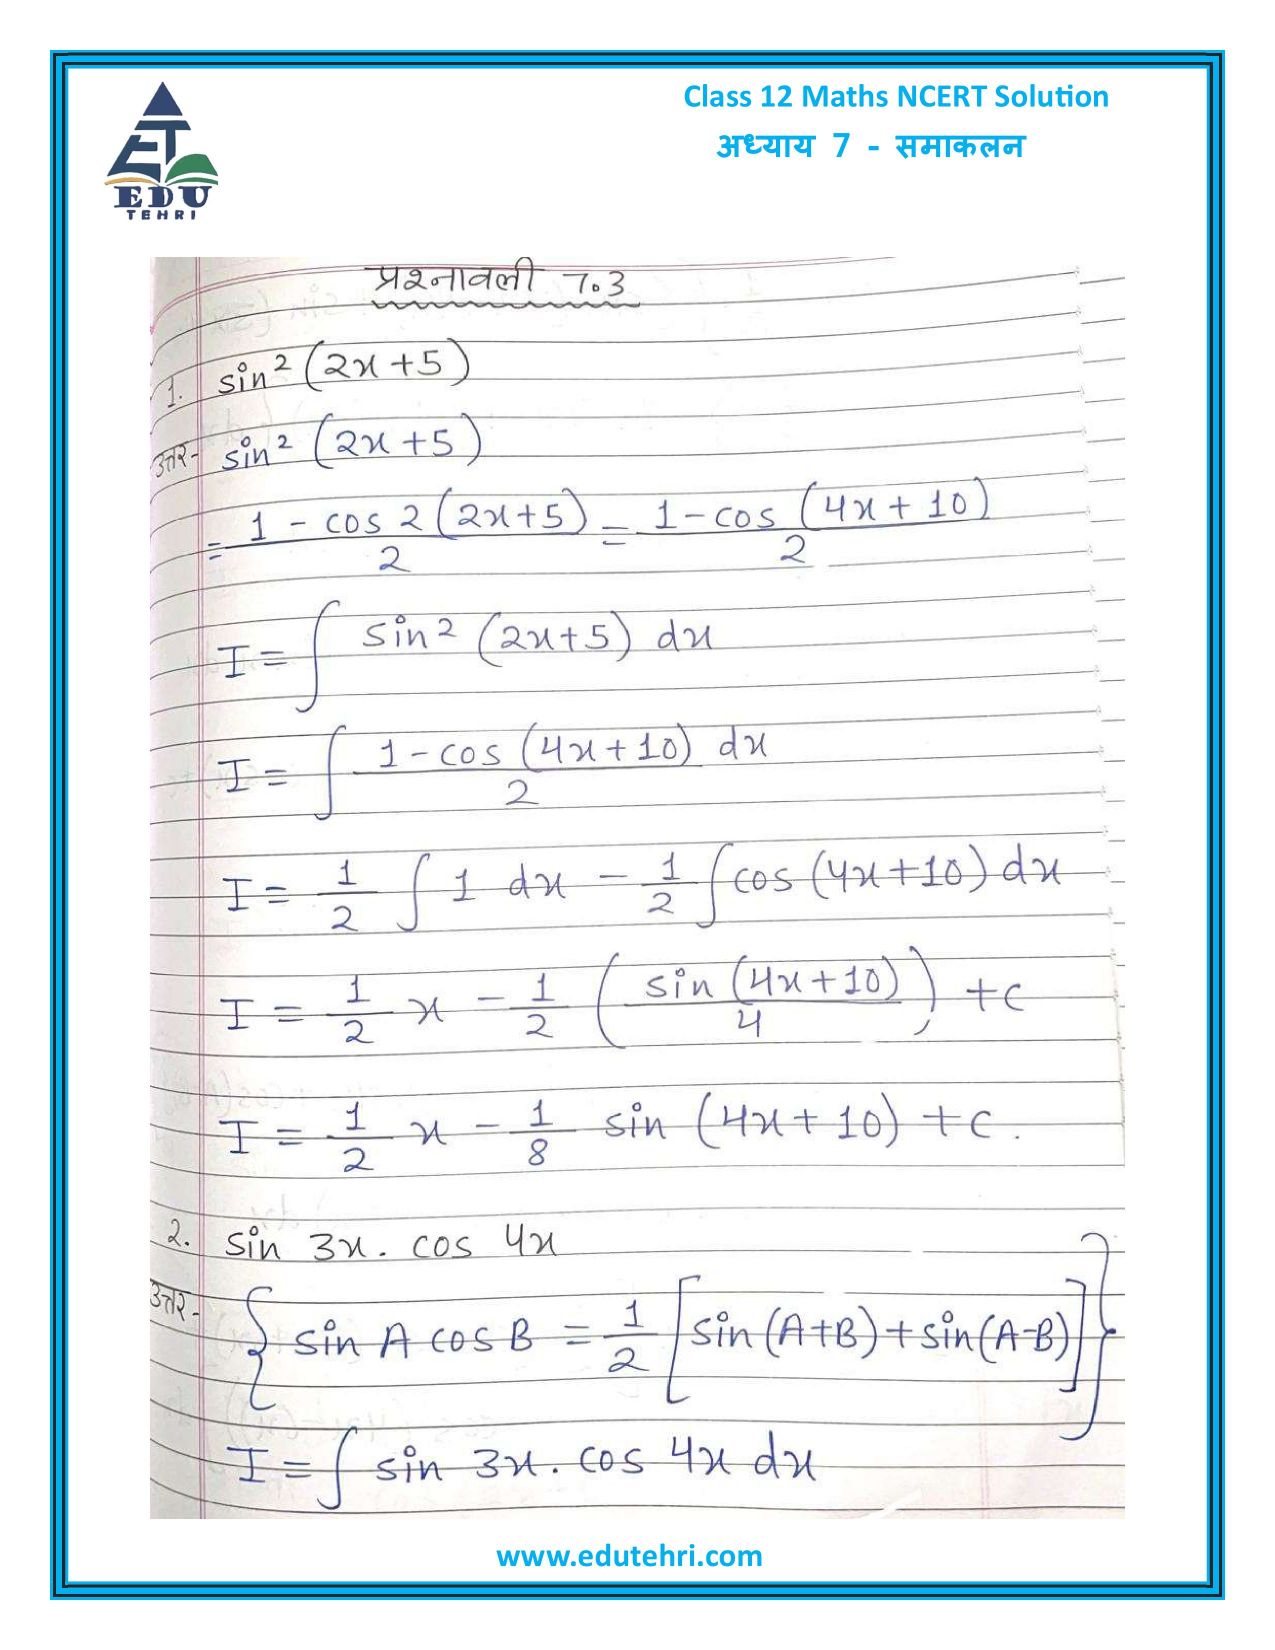 Class 12 Maths NCERT Solution
अध्याय 7 - समाकलन
EDU
TEHRI
प्रश्नावली 7.3
1. sin² (2x+5)
उत्तर- sin² (2x+5)
= 1 - cos 2 (2x+5) / 2 = 1 - cos (4x + 10) / 2
I = ∫ sin² (2x+5) dx
I = ∫ 1 - cos (4x+10) dx / 2
I = 1/2 ∫ 1 dx - 1/2 ∫ cos (4x+10) dx
I = 1/2 x - 1/2 ( sin (4x+10) / 4 ) + c
I = 1/2 x - 1/8 sin (4x + 10) + c.
2. sin 3x . cos 4x
उत्तर- { sin A cos B = 1/2 [ sin (A+B) + sin (A-B) ] }
I = ∫ sin 3x . cos 4x dx
www.edutehri.com